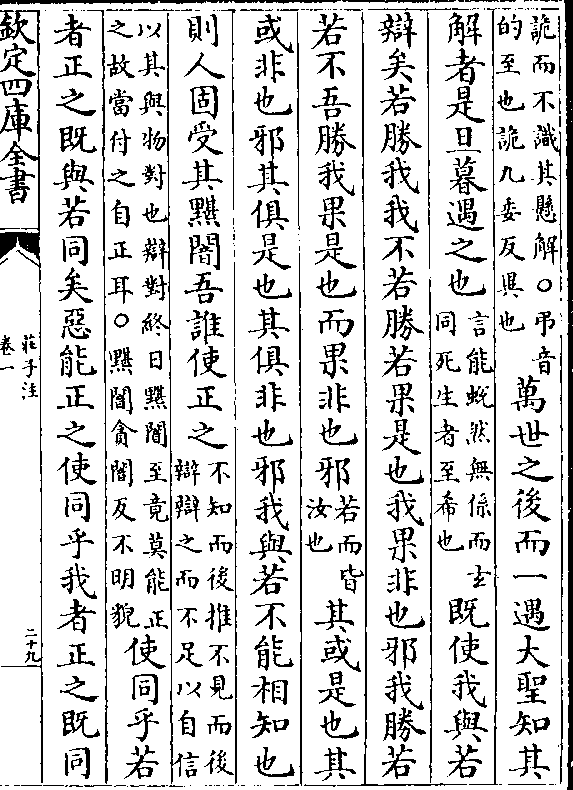 詭而不識其懸解○弔音
的至也詭九委反異也
萬世之後而一遇大聖知其
解者是旦暮遇之也
言能蛻然無係而玄
同死生者至希也
既使我與若
辯矣若勝我我不若勝若果是也我果非也邪我勝若
若不吾勝我果是也而果非也邪
若而皆
汝也
其或是也其
或非也邪其俱是也其俱非也邪我與若不能相知也
則人固受其黮闇吾誰使正之
不知而後推不見而後
辯辯之而不足以自信
以其與物對也辯對終日黮闇至竟莫能正
之故當付之自正耳○黮闇貪闇反不明貌
使同乎若
者正之既與若同矣惡能正之使同乎我者正之既同
欽定四庫全書
莊子注
卷一
二十九